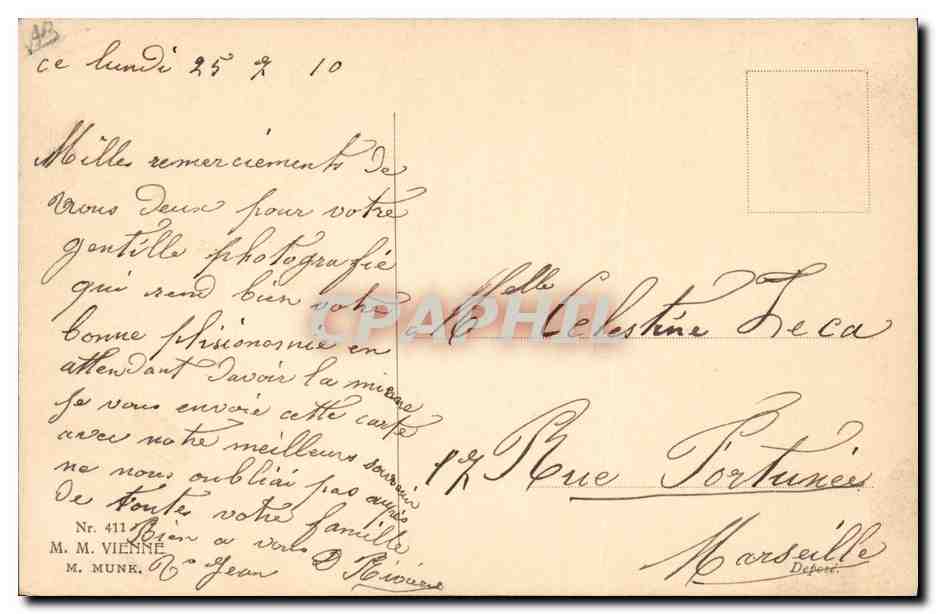 AB
ce lundi 25 7 10
Milles remerciements de
vous deux pour votre
gentille photografie
qui rend bien votre
bonne phisionomie en
attendant davoir la mienne
je vous envoie cette carte
avec notre meilleurs souvenir
ne nous oubliai pas aupres
de toutes votre famille
Bien a vous
Jean D Rivière
Nr. 411
M. M. VIENNE
M. MUNK.
CPAPHIL
a Melle Celestine Leca
17 Rue Fortunée
Marseille
Deposé.